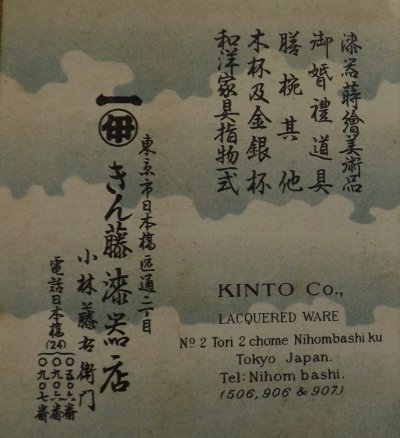 漆器蒔繪美術品
御婚禮道具
膳椀其他
木杯及金銀杯
和洋家具指物一式
東京市日本橋區通二丁目
きん藤漆器店
小林藤右衛門
電話日本橋(24)
〇五〇六番
〇九〇六番
〇九〇七番
KINTO Co.,
LACQUERED WARE
No 2 Tori 2 chome Nihombashi ku
Tokyo Japan.
Tel: Nihom bashi.
(506, 906 & 907.)